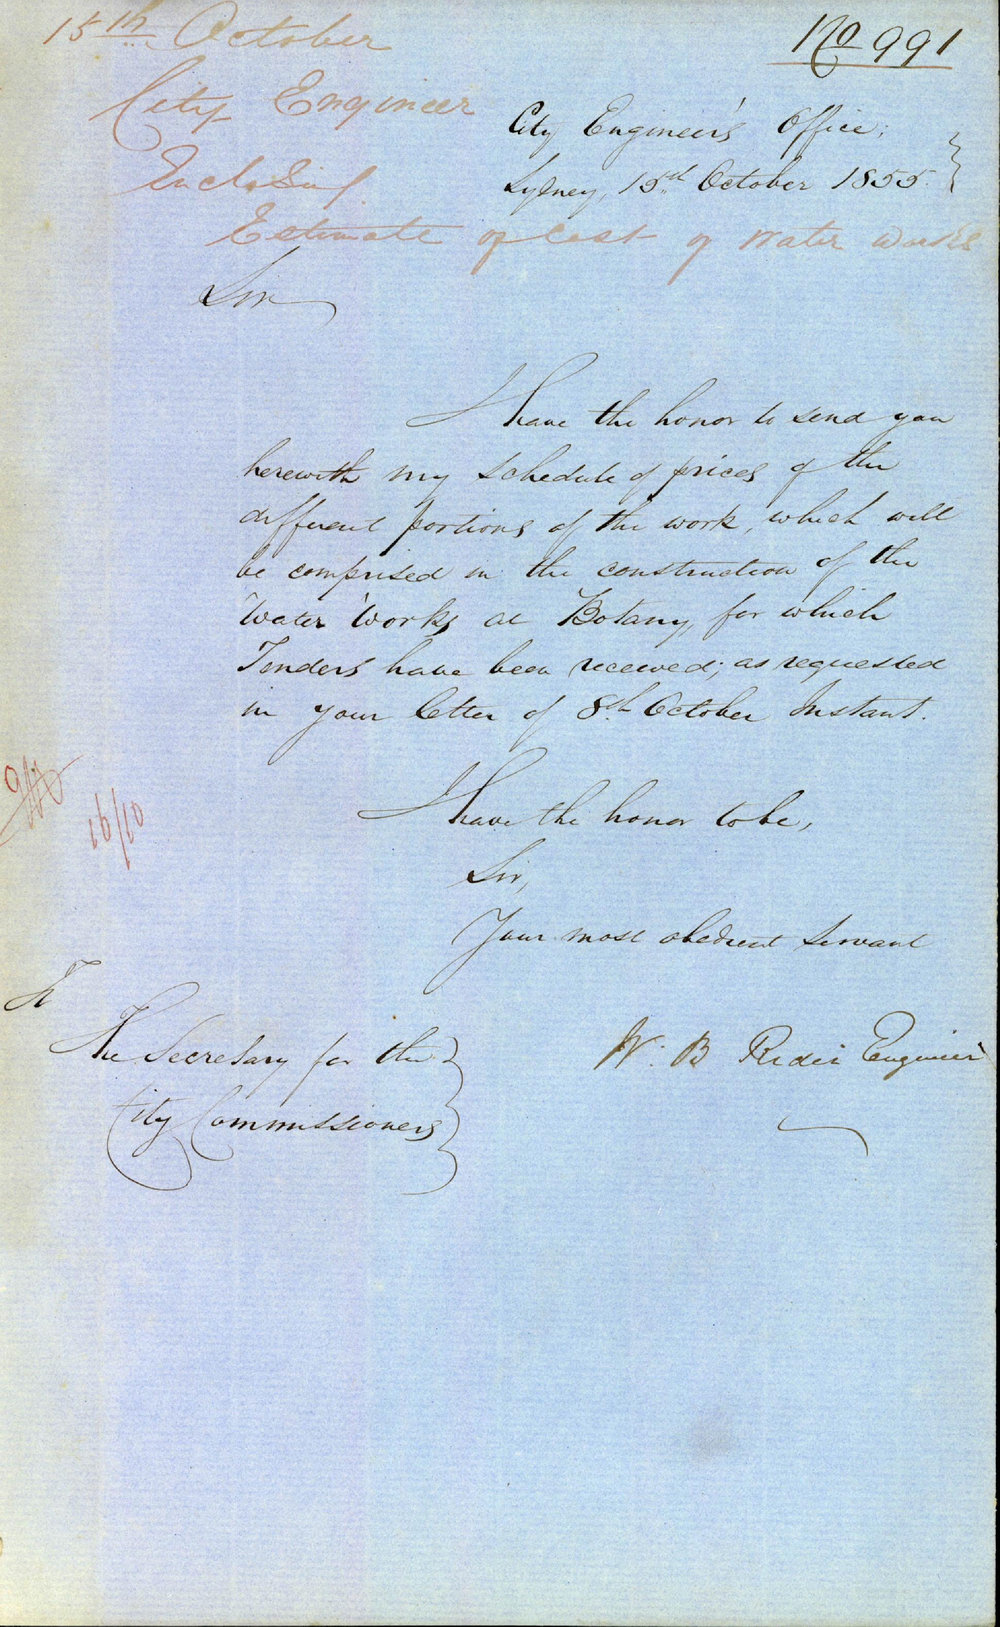 15th October
No 991
City Engineer
Enclosing
Estimate of Cost of Water Works
City Engineer's Office;
Sydney, 15th October 1855.
Sir
I have the honor to send you
herewith my schedule of prices of the
different portions of the work, which will
be comprised in the construction of the
Water Works at Botany, for which
Tenders have been received; as requested
in your letter of 8th October Instant.
I have the honor to be,
Sir,
Your most obedient servant
W. B Rider Engineer
16/10
To
The Secretary for the
City Commissioners